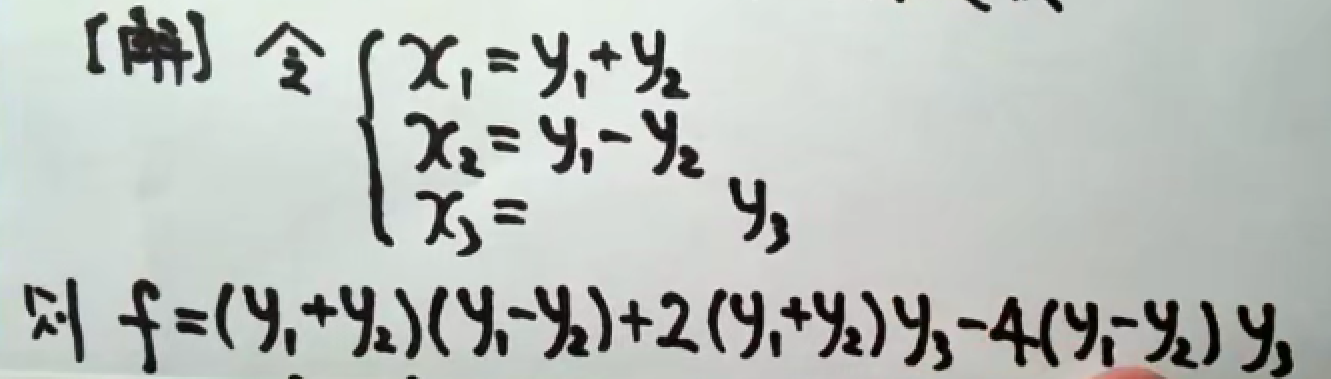 [解] 令 { x₁ = y₁ + y₂
x₂ = y₁ - y₂
x₃ = y₃
则 f = (y₁+y₂)(y₁-y₂)+2(y₁+y₂)y₃-4(y₁-y₂)y₃